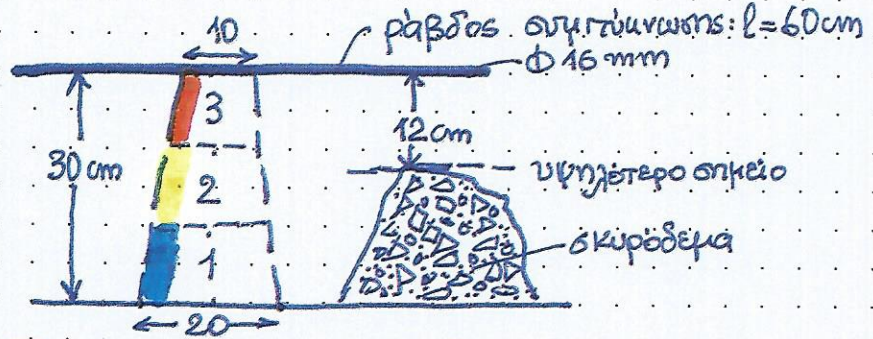 10 ράβδος συμπύκνωσης: l=60cm
Φ 16 mm
3
12cm
30cm
2
υψηλότερο σημείο
1
σκυρόδεμα
20